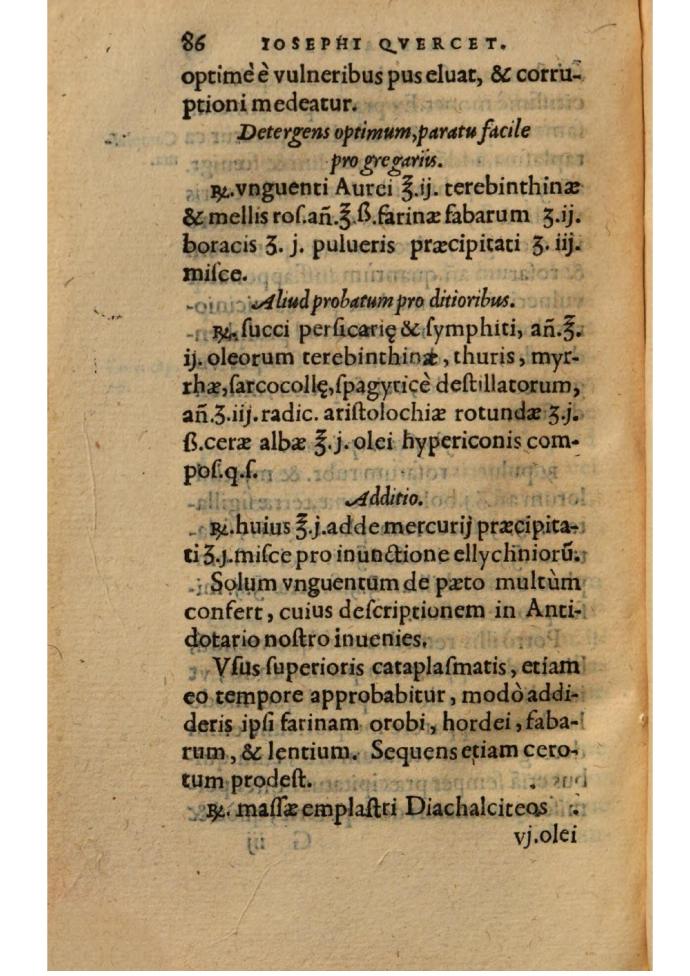 86 IOSEPHI QVERCET.
optimè è vulneribus pus eluat, & corru-
ptioni medeatur.
Detergens optimum, paratu facile
pro gregariis.
℞. vnguenti Aurei ℥.ij. terebinthinæ
& mellis roſ. añ. ℥.ß. farinæ fabarum ʒ.ij.
boracis ʒ. j. pulueris præcipitati ʒ. iij.
miſce.
Aliud probatum pro ditioribus.
℞. ſucci perſicarię & ſymphiti, añ. ℥.
ij. oleorum terebinthinæ, thuris, myr-
rhæ, ſarcocollę, ſpagyricè deſtillatorum,
añ. ʒ. iij. radic. ariſtolochiæ rotundæ ʒ.j.
ß. ceræ albæ ℥. j. olei hypericonis com-
poſ. q. ſ.
Additio.
℞. huius ℥.j. adde mercurij præcipita-
ti ʒ.j. miſce pro inunctione ellychniorū.
Solum vnguentum de pæto multùm
confert, cuius deſcriptionem in Anti-
dotario noſtro inuenies.
Vſus ſuperioris cataplaſmatis, etiam
eo tempore approbabitur, modò addi-
deris ipſi farinam orobi, hordei, faba-
rum, & lentium. Sequens etiam cero-
tum prodeſt.
℞. maſſæ emplaſtri Diachalciteos
vj. olei